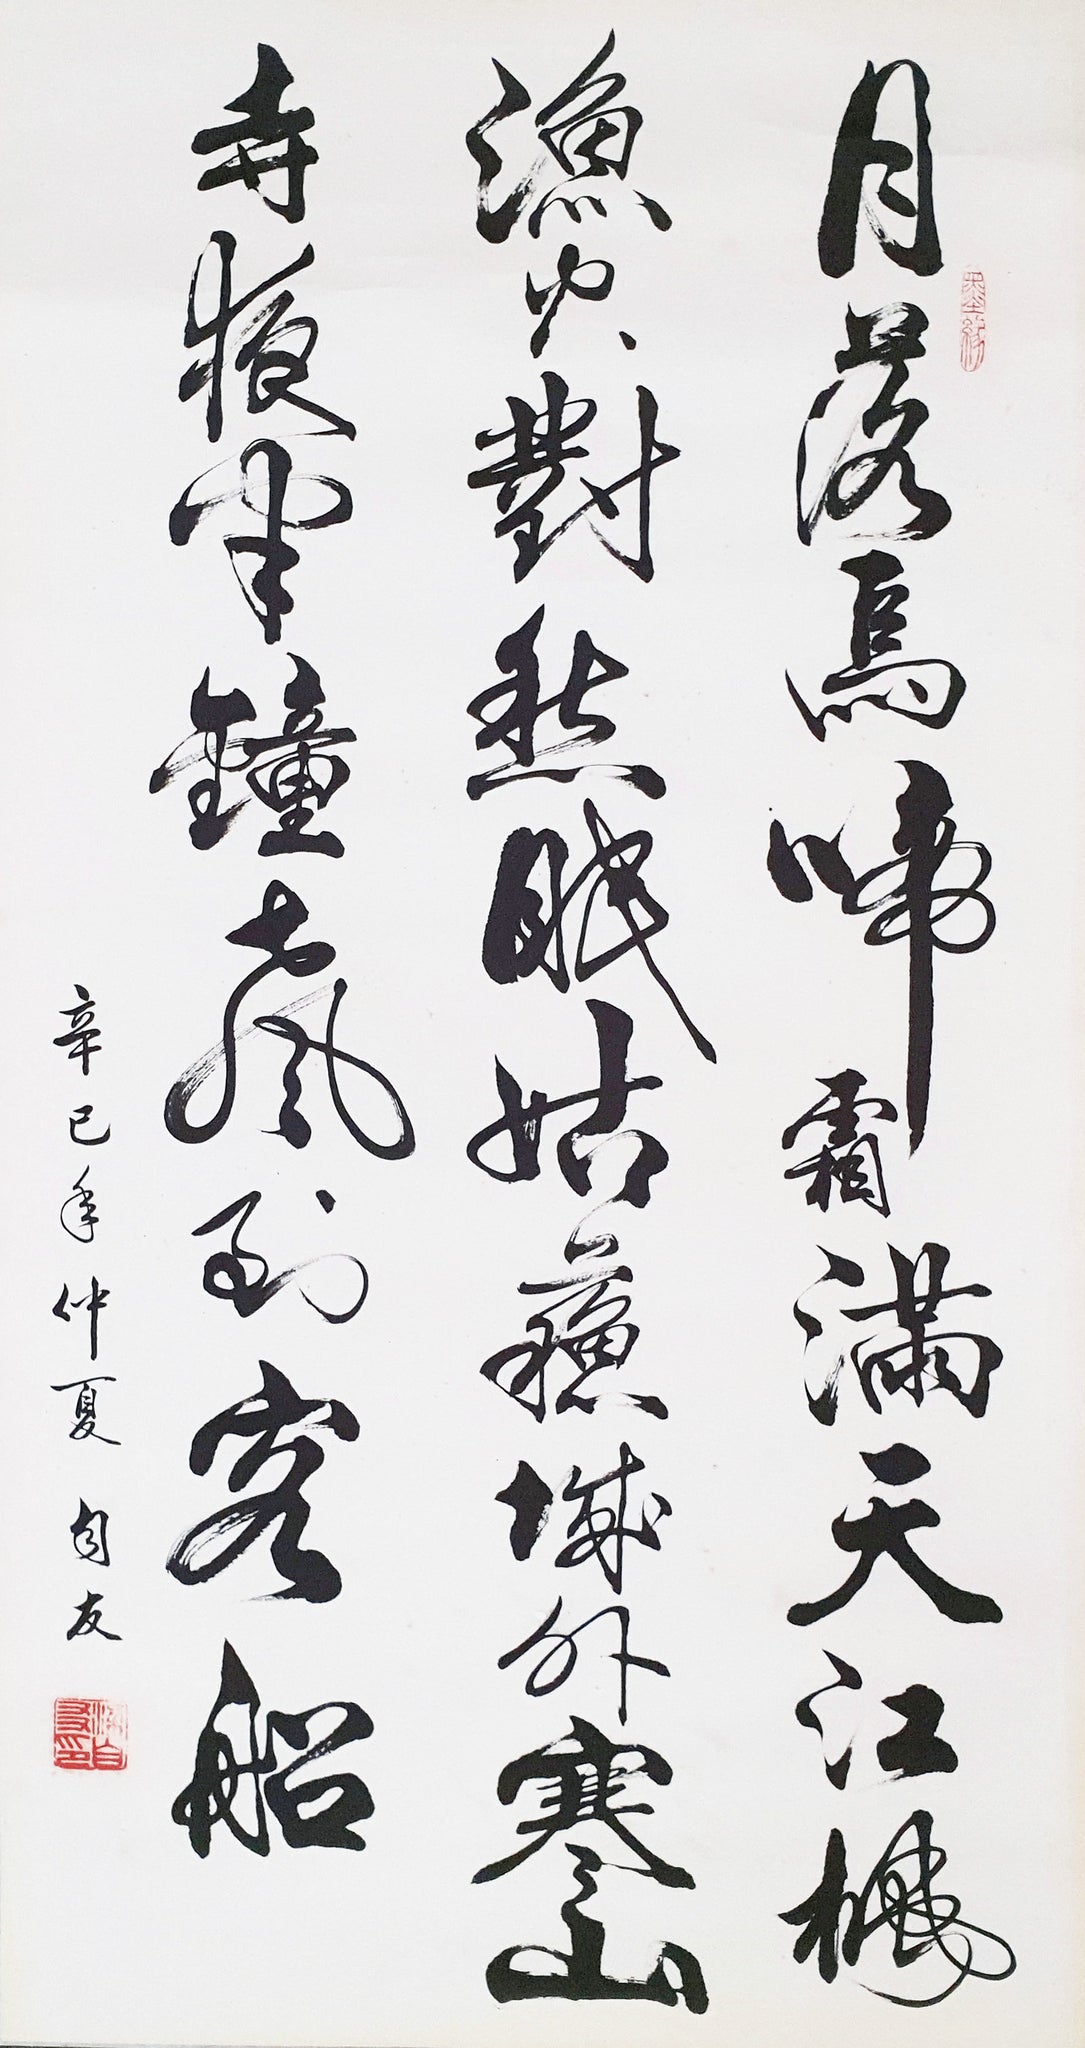 月落烏啼霜滿天江楓
漁火對愁眠姑蘇城外寒山
寺夜半鐘聲到客船
辛巳年仲夏自友
墨緣